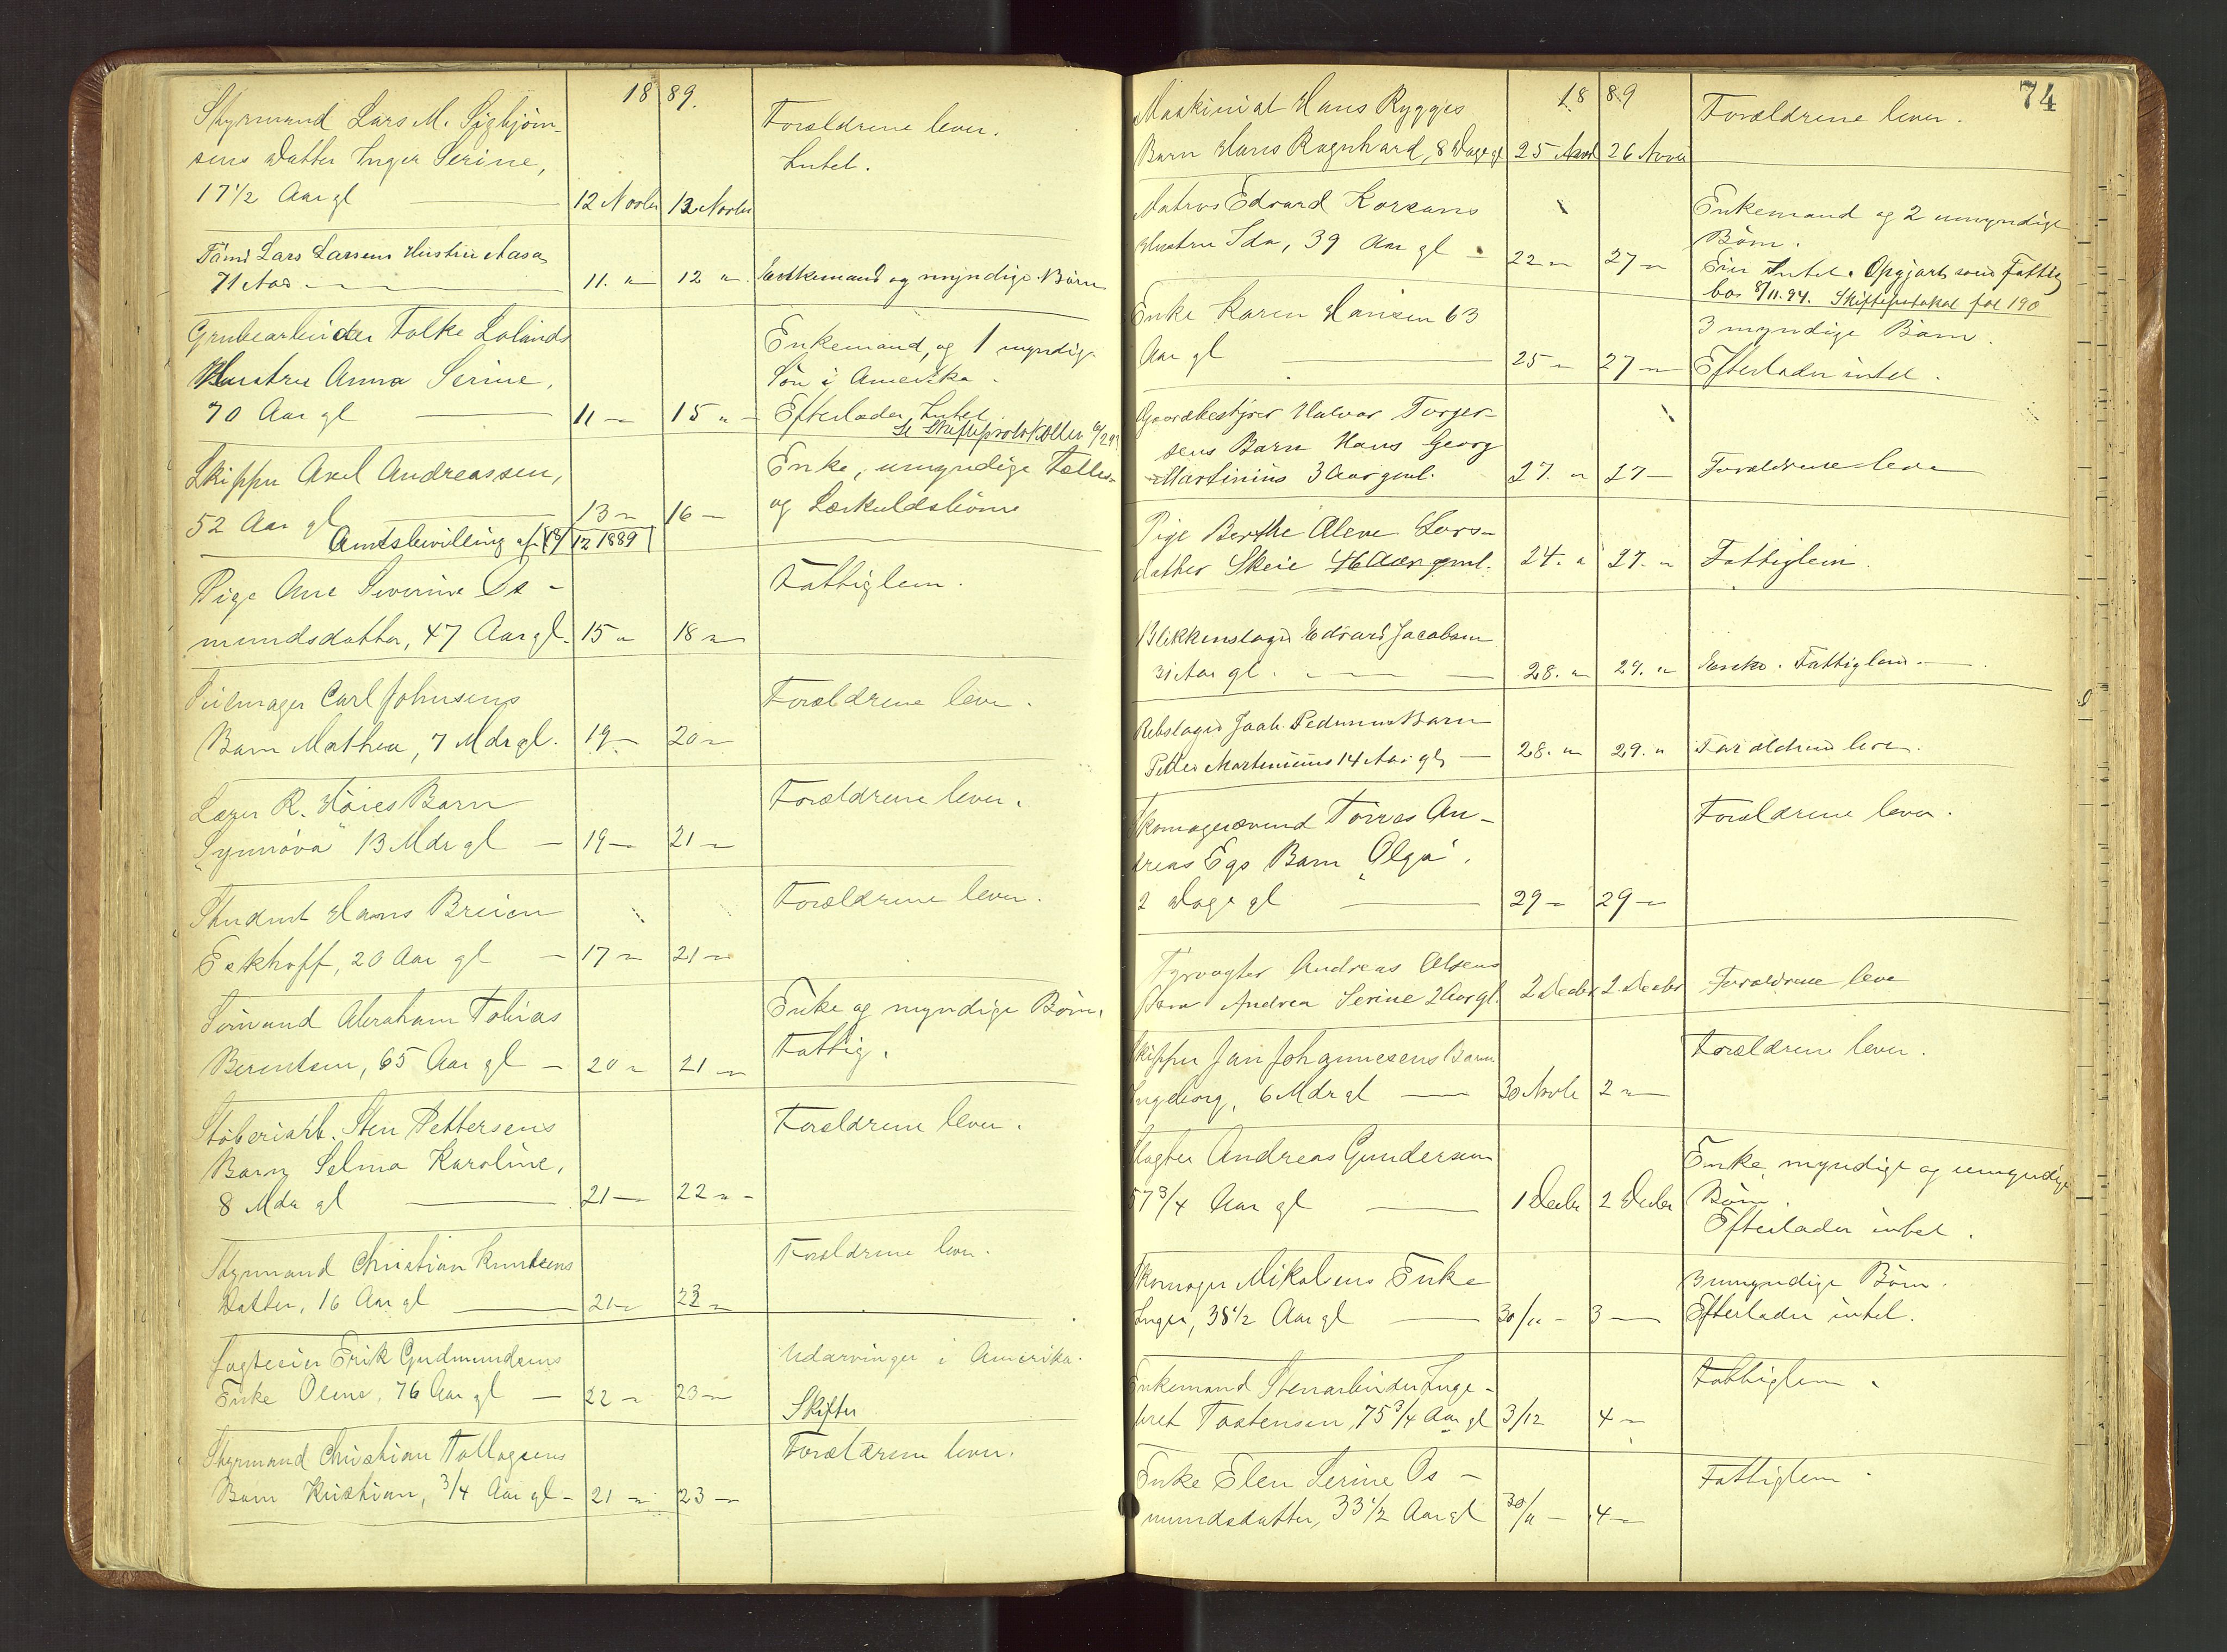 1889.
Styrmand Lars M. Sigbjörn-
sens Datter Inger Serine,
17 1/2 Aar gl
12 Novbr 13 Novbr
Forældrene lever.
Intet.
Tömr Lars Larsens Hustru Aasa
71 Aar
11. " 12 ". Enkemand og myndige Börn
Grubearbeider Folke Lolands
Hustru Anna Serine,
70 Aar gl
11 " 15 "
Enkemand, og 1 myndig
Sön i Amerika.
Efterlader Intet
Se Skifteprotokollen
Skipper Axel Andreassen,
52 Aar gl
13 " 16 "
Amtsbevilling af 18/12 1889
Enke, umyndige Fælles-
og Særkuldsbörn
Pige Ane Severine Os-
mundsdatter, 47 Aar gl. 15 " 18 "
Fattiglem.
Carl Johnsens
Barn Mathea, 7 Mdr gl. 19 " 20 "
Forældrene lever.
Læger R. Höies Barn
"Synnöva" 13 Mdr gl 19 " 21 "
Forældrene lever.
Student Hans Breien
Eckhoff, 20 Aar gl 17 " 21 "
Forældrene lever.
Sömand Abraham Tobias
Berentsen, 65 Aar gl 20 " 21 "
Enke og myndige Börn.
Fattig.
Stöberiarb. Sten Pettersens
Barn Selma Karoline,
8 Mdr gl 21 " 22 "
Forældrene lever.
Styrmand Christian Knudsens
Datter, 16 Aar gl 21 " 23 "
Forældrene lever.
Jagteier Erik Gudmundsens
Enke Oline, 76 Aar gl 22 " 23 "
Udarvinger i Amerika.
Skifter
Styrmand Christian Tollagsens
Barn Kristian, 3/4 Aar gl 21 " 23 "
Forældrene lever.
74
1889
Maskinist Hans Rygges
Barn Hans Ragnhard, 8 Dage gl 25 Novb 26 Novbr
Forældrene lever.
Matros Edvard Korsans
Hustru Ida, 39 Aar gl 22 " 27 "
Enkemand og 2 umyndige
Börn.
Eier Intet. Opgjort som Fattig
bo 8/11.94. Skifteprotokol fol 190
Enke Karen Hansen 63
Aar gl 25 " 27 "
3 myndige Börn.
Efterlader intet.
Gaardbestyrer Halvor Torger-
sens Barn Hans Georg
Martinius 3 Aar gml. 27. " 27 "
Forældrene leve
Pige Berthe Olene Lars-
datter Skeie 46 Aar gml. 24. " 27. "
Fattiglem.
Blikkenslager Edvard Jacobsen
31 Aar gl. 28. " 29. "
Enke. Fattiglem.
Rebslager Jaab. Pedersens Barn
Petter Martinius 14 Aar gl 28. " 29. "
Forældrene leve.
Skomagersvend Torres An-
dreas Egs Barn "Olga".
2 Dage gl 29 " 29 "
Forældrene lever.
Fyrvogter Andreas Olsens
Barn Andrea Serine 2 Aar gl. 2 Decbr 2 Decbr
Forældrene leve
Skipper Jan Johannesens Barn
Ingeborg, 6 Mdr gl 30 Novb 2 "
Forældrene lever.
Slagter Andreas Gundersen
57 3/4 Aar gl 1 Decbr 2 Decbr
Enke, myndige og umyndige
Börn.
Efterlader intet.
Skomager Mikalsens Enke
Inger, 38 1/2 Aar gl 30/11 3
3 umyndige Börn.
Efterlader intet.
Enkemand Stenarbeider Inge-
bret Tostensen, 75 3/4 Aar gl 3/12 4 "
Fattiglem.
Enke Elen Serine Os-
mundsdatter, 33 1/2 Aar gl 30/11 4 "
Fattiglem.